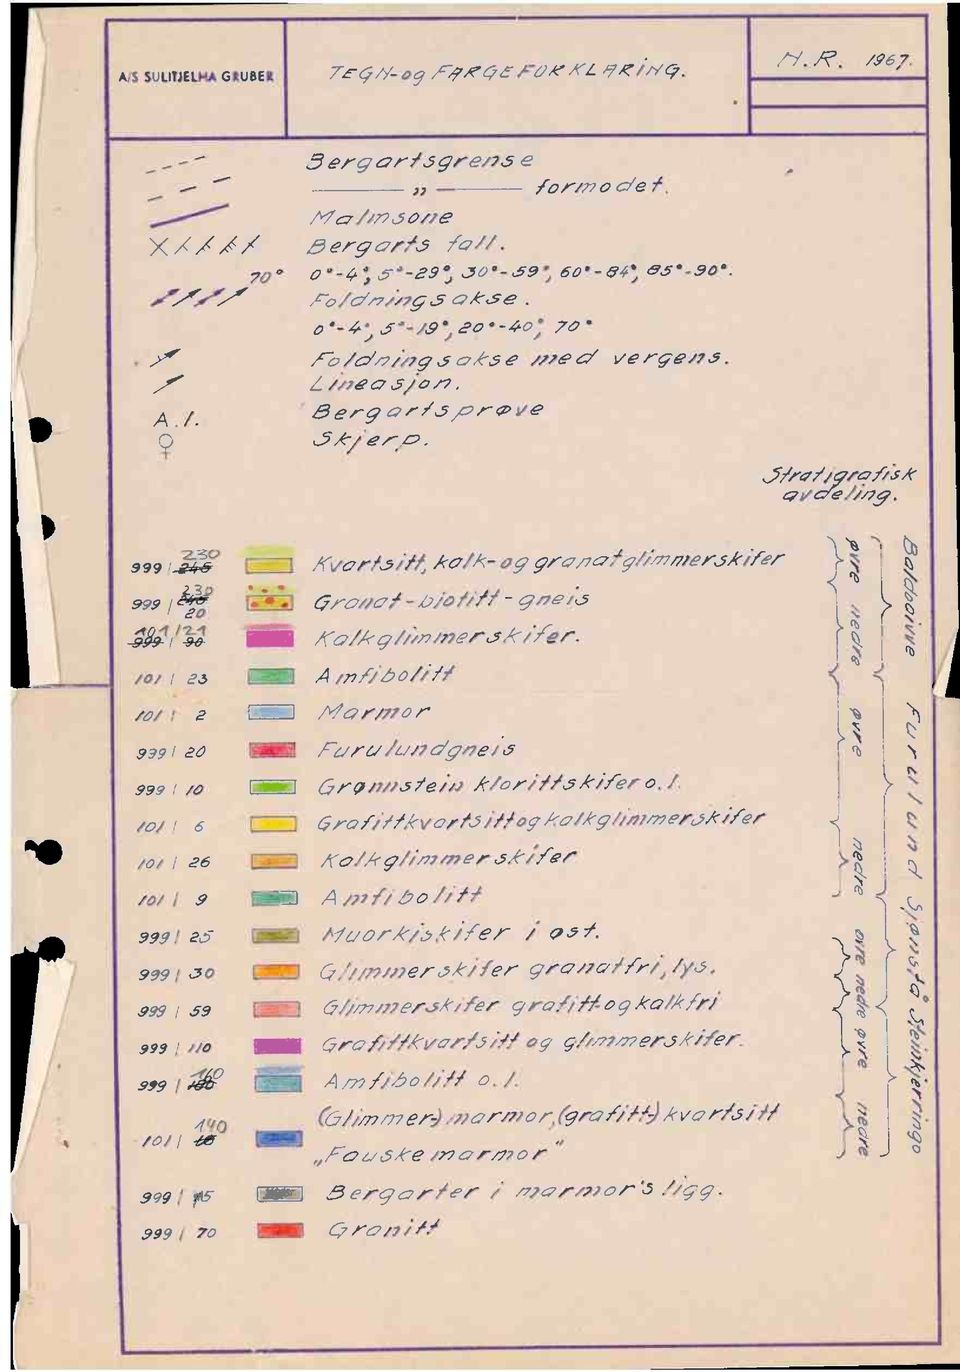 A/S SULITJELMA GRUBER
TEGN-og FARGEFORKLARiNG.
N.R. 1967.
Bergartsgrense
—— " —— formodet.
Malmsone
Bergarts fall.
0°-4°, 5°-29°, 30°-59°, 60°-84°, 85°-90°.
70° Foldningsakse.
0°-4°, 5°-19°, 20°-40°, 70°
Foldningsakse med vergens.
Lineasjon.
A.1. Bergartsprøve
Skjerp.
Stratigrafisk
avdeling.
999 | 245 230 Kvartsitt, kalk- og granatglimmerskifer
999 | 240 230 20 Granat-biotitt-gneis
999 | 90 101/21 Kalkglimmerskifer.
101 | 23 Amfibolitt
101 | 2 Marmor
999 | 20 Furulundgneis
999 | 10 Grønnstein klorittskifer o.l.
101 | 6 Grafittkvartsitt og kalkglimmerskifer
101 | 26 Kalkglimmerskifer
101 | 9 Amfibolitt
999 | 25 Muorkiskifer i øst.
999 | 30 Glimmerskifer granatfri, lys.
999 | 59 Glimmerskifer grafitt- og kalkfri
999 | 110 Grafittkvartsitt og glimmerskifer.
999 | 160 Amfibolitt o.l.
101 | 140 (Glimmer-) marmor, (grafitt-) kvartsitt
„Fauske marmor"
999 | 15 Bergarter i marmor's ligg.
999 | 70 Granitt
øvre nedre øvre nedre øvre nedre øvre nedre
Baldoaivve Furulund Sjønstå Steinkjerringo